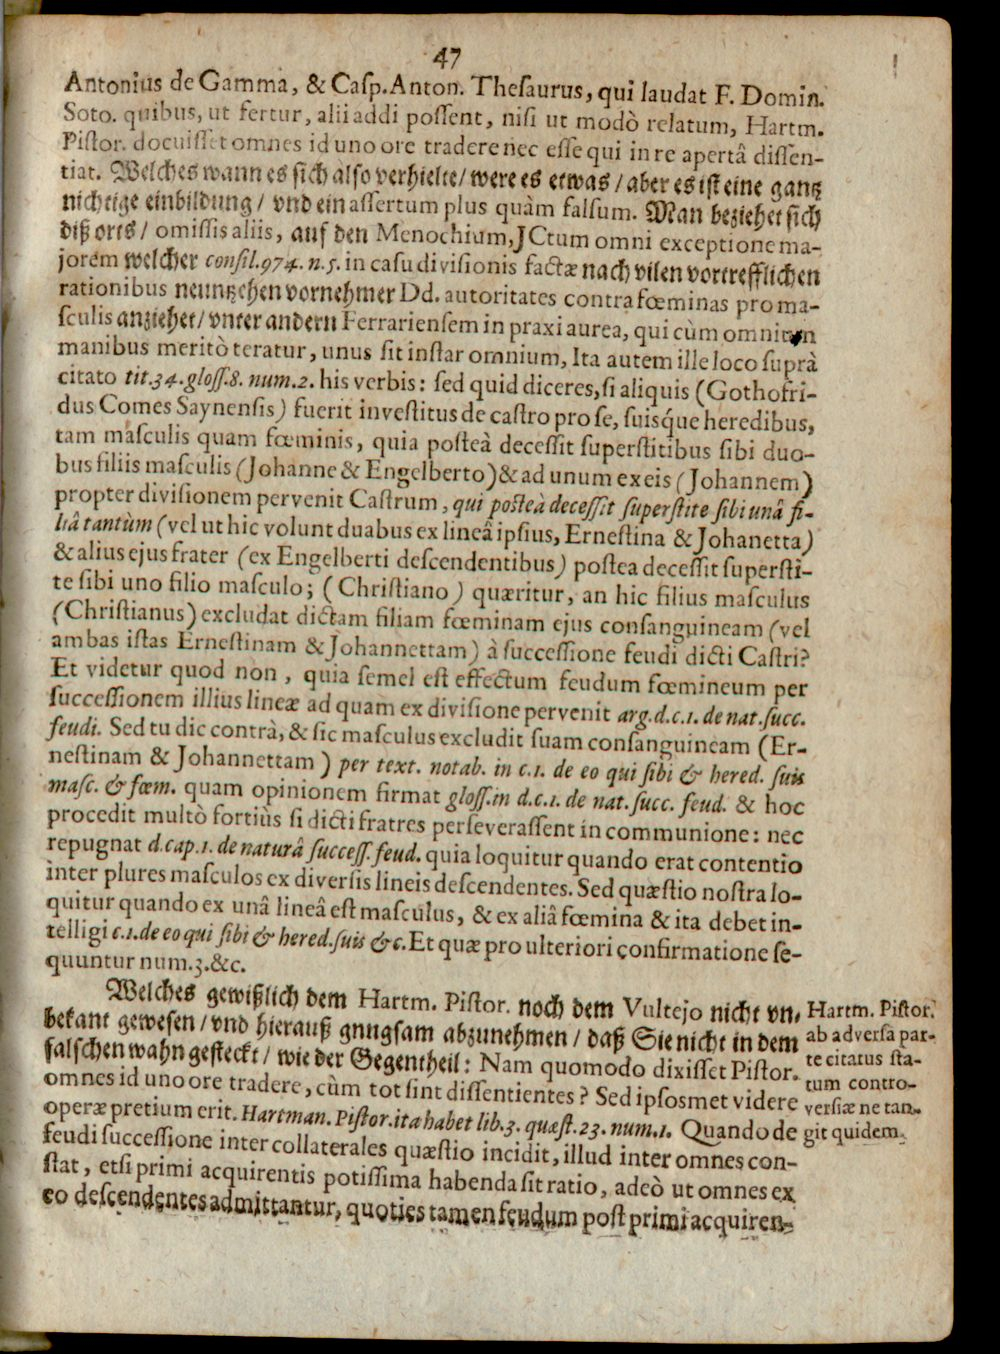 47
Antonius de Gamma, & Casp. Anton. Thesaurus, qui laudat F. Domin.
Soto. quibus, ut fertur, alii addi possent, nisi ut modò relatum, Hartm.
Pistor. docuisset omnes id uno ore tradere nec esse qui in re apertâ dissen-
tiat. Welches wann es sich also verhielte/ were es etwas/ aber es ist eine gantz
nichtige einbildung/ vnd ein assertum plus quàm falsum. Man beziehet sich
diß orts/ omissis aliis, auf den Menochium, JCtum omni exceptione ma-
jorem welcher consil. 974. n. 5. in casu divisionis factæ nach vilen vortrefflichen
rationibus neuntzehen vornehmer Dd. autoritates contra fœminas pro ma-
sculis anziehet/ vnter andern Ferrariensem in praxi aurea, qui cùm omnium
manibus meritò teratur, unus sit instar omnium, Ita autem ille loco suprà
citato tit. 34. gloss. 8. num. 2. his verbis: sed quid diceres, si aliquis (Gothofri-
dus Comes Saynensis) fuerit investitus de castro pro se, suisq́ue heredibus,
tam masculis quam fœminis, quia posteà decessit superstitibus sibi duo-
bus filiis masculis (Johanne & Engelberto) & ad unum ex eis (Johannem)
propter divisionem pervenit Castrum, qui posteà decessit superstite sibi unâ fi-
liâ tantùm (vel ut hic volunt duabus ex lineâ ipsius, Ernestina & Johanetta)
& alius ejus frater (ex Engelberti descendentibus) postea decessit supersti-
te sibi uno filio masculo; (Christiano) quæritur, an hic filius masculus
(Christianus) excludat dictam filiam fœminam ejus consanguineam (vel
ambas istas Ernestinam & Johannettam) à successione feudi dicti Castri?
Et videtur quod non, quia semel est effectum feudum fœmineum per
successionem illius lineæ ad quam ex divisione pervenit arg. d. c. 1. de nat. succ.
feudi. Sed tu dic contrà, & sic masculus excludit suam consanguineam (Er-
nestinam & Johannettam) per text. notab. in c. 1. de eo qui sibi & hered. suis
masc. & fœm. quam opinionem firmat gloss. in d. c. 1. de nat. succ. feud. & hoc
procedit multò fortiùs si dicti fratres perseverassent in communione: nec
repugnat d. cap. 1. de naturâ success. feud. quia loquitur quando erat contentio
inter plures masculos ex diversis lineis descendentes. Sed quæstio nostra lo-
quitur quando ex unâ lineâ est masculus, & ex aliâ fœmina & ita debet in-
telligi c. 1. de eo qui sibi & hered. suis &c. Et quæ pro ulteriori confirmatione se-
quuntur num. 3. &c.
Welches gewißlich dem Hartm. Pistor. noch dem Vultejo nicht vn-
bekant gewesen/ vnd hierauß gnugsam abzunehmen/ daß Sie nicht in dem
falschen wahn gesteckt/ wie der Gegentheil: Nam quomodo dixisset Pistor.
omnes id uno ore tradere, cùm tot sint dissentientes? Sed ipsosmet videre
operæ pretium erit. Hartman. Pistor. ita habet lib. 3. quæst. 23. num. 1. Quando de
feudi successione inter collaterales quæstio incidit, illud inter omnes con-
stat, etsi primi acquirentis potissima habenda sit ratio, adeò ut omnes ex
eo descendentes admittantur, quoties tamen feudum post primi acquiren-
Hartm. Pistor.
ab adversa par-
te citatus sta-
tum contro-
versiæ ne tan-
git quidem.